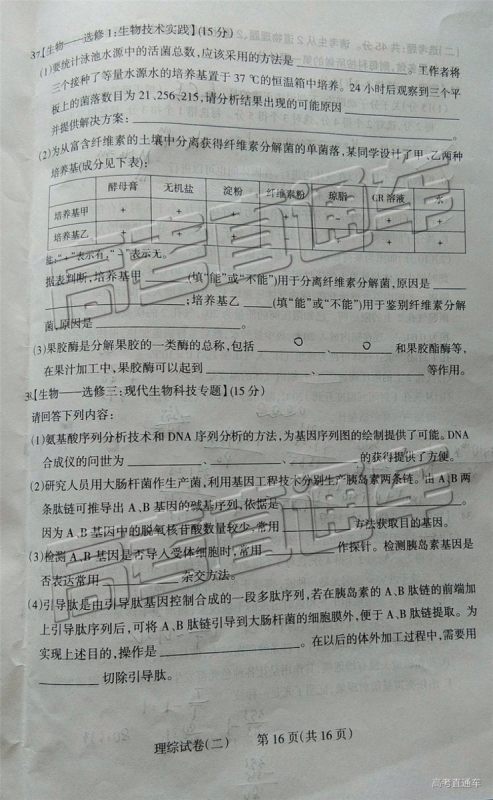 37.【生物——选修1:生物技术实践】(15分)
(1)要统计泳池水源中的活菌总数,应该采用的方法是________。工作者将
三个接种了等量水源水的培养基置于37℃的恒温箱中培养。24小时后观察到三个平
板上的菌落数目为21、256、215,请分析结果出现的可能原因________
并提供解决方案:________。
(2)为从富含纤维素的土壤中分离获得纤维素分解菌的单菌落,某同学设计了甲、乙两种
培养基(成分见下表):
酵母膏 无机盐 淀粉 纤维素粉 琼脂 CR溶液 水
培养基甲 + + + + - + +
培养基乙 + + + + + +
"+"表示有,"-"表示无。
据表判断,培养基甲________(填"能"或"不能")用于分离纤维素分解菌,原因是____
________;培养基乙________(填"能"或"不能")用于鉴别纤维素分解
菌,原因是________。
(3)果胶酶是分解果胶的一类酶的总称,包括________、________和果胶酯酶等,
在果汁加工中,果胶酶可以起到________、________等作用。
3【生物——选修三:现代生物科技专题】(15分)
请回答下列内容:
(1)氨基酸序列分析技术和DNA序列分析的方法,为基因序列图的绘制提供了可能。DNA
合成仪的问世为________、________、________的获得提供了方便。
(2)研究人员用大肠杆菌作生产菌,利用基因工程技术分别生产胰岛素两条链。由A、B两
条肽链可推导出A、B基因的碱基序列,依据是________。
因为A、B基因中的脱氧核苷酸数量较少,常用________方法获取目的基因。
(3)检测A、B基因是否导入受体细胞时,常用________作探针。检测胰岛素基因是
否表达常用________杂交方法。
(4)引导肽是由引导肽基因控制合成的一段多肽序列,若在胰岛素的A、B肽链的前端加
上引导肽序列后,可将A、B肽链引导到大肠杆菌的细胞膜外,便于A、B肽链提取。为
实现上述目的,操作是________。在以后的体外加工过程中,需要用
________切除引导肽。
理综试卷(二) 第16页(共16页)
高考直通车
高考直通车
高考直通车